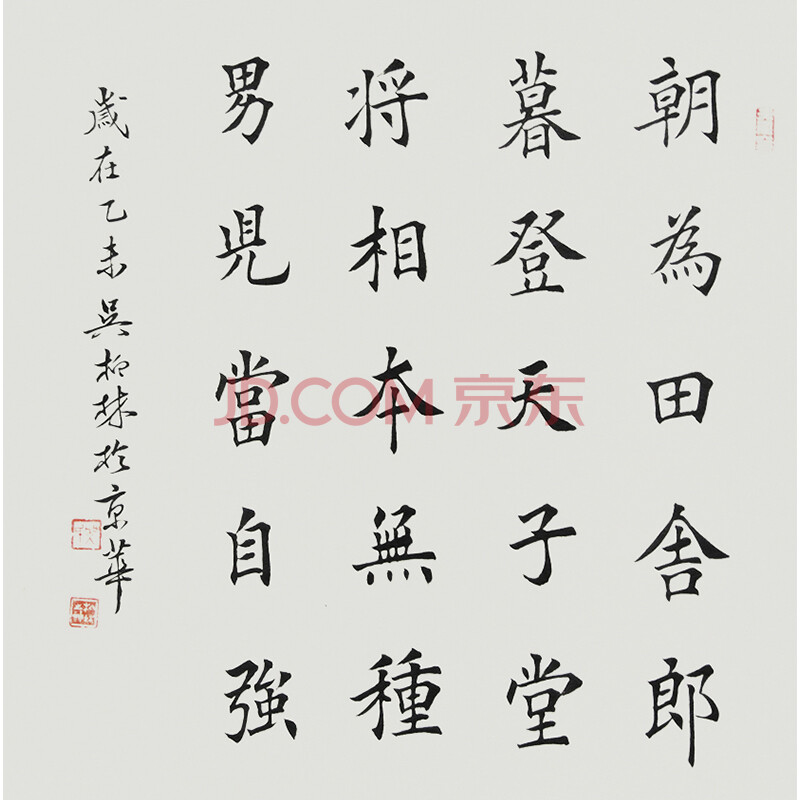 朝為田舍郎
暮登天子堂
将相本無種
男児當自強
歲在乙未吳柳林於京華
JD.COM 京东